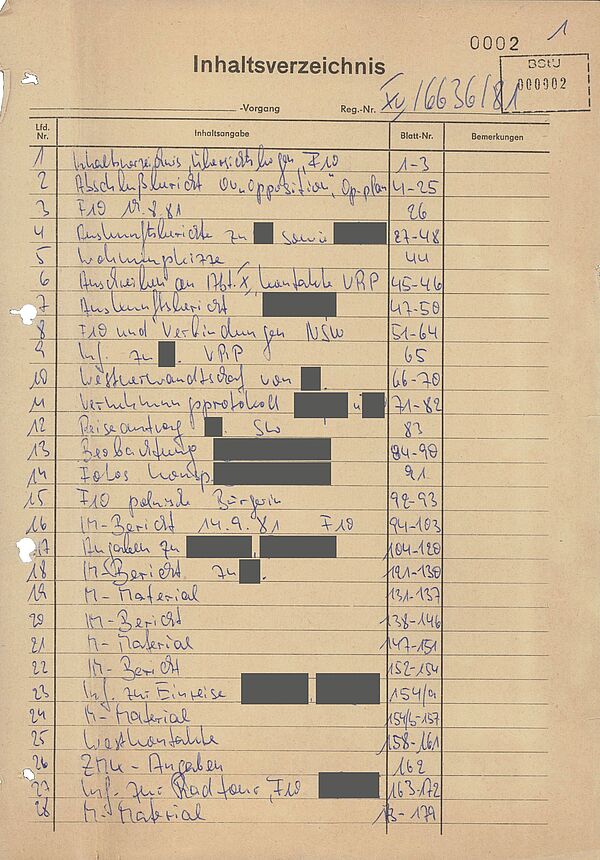 1
0002
BStU
000002
Inhaltsverzeichnis
-Vorgang Reg.-Nr. XV/6636/81
Lfd. Nr. Inhaltsangabe Blatt-Nr. Bemerkungen
1 Inhaltsverzeichnis Übersichtsbogen, F10 1-3
2 Abschlußbericht OV "Opposition", Op-plan 4-25
3 F10 19.8.81 26
4 Auskunftsberichte zu sowie 27-48
5 Wohnungsskizze 44
6 Anschreiben an Abt. X, Kontakte VRP 45-46
7 Auskunftsbericht 47-50
8 F10 und Verbindungen NSW 51-64
9 Inf. zu . VRP 65
10 Westverwandtschaft von . 66-70
11 Vernehmungsprotokoll u. 71-82
12 Reiseantrag . SW 83
13 Beobachtung 84-90
14 Fotos konsp. 91
15 F10 polnische Bürgerin 92-93
16 IM-Bericht 14.9.81 F10 94-103
17 Angaben zu , 104-120
18 IM-Bericht zu . 121-130
19 M-Material 131-137
20 IM-Bericht 138-146
21 M-Material 147-151
22 IM-Bericht 152-154
23 Inf. zur Einreise , 154/a
24 M-Material 154/b-157
25 Westkontakte 158-161
26 ZMK-Angaben 162
27 Inf. zur Radtour, F10 163-172
28 M-Material 173-179